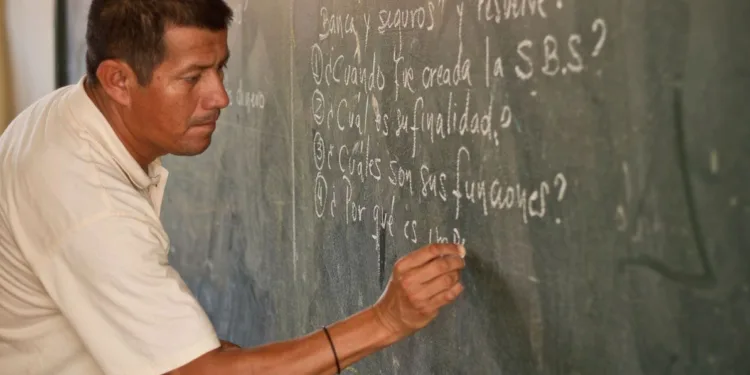 Banca y seguros" y resuelve:
① ¿Cuándo fue creada la S.B.S?
② ¿Cuál es su finalidad?
③ ¿Cuáles son sus funciones?
④ ¿Por qué es